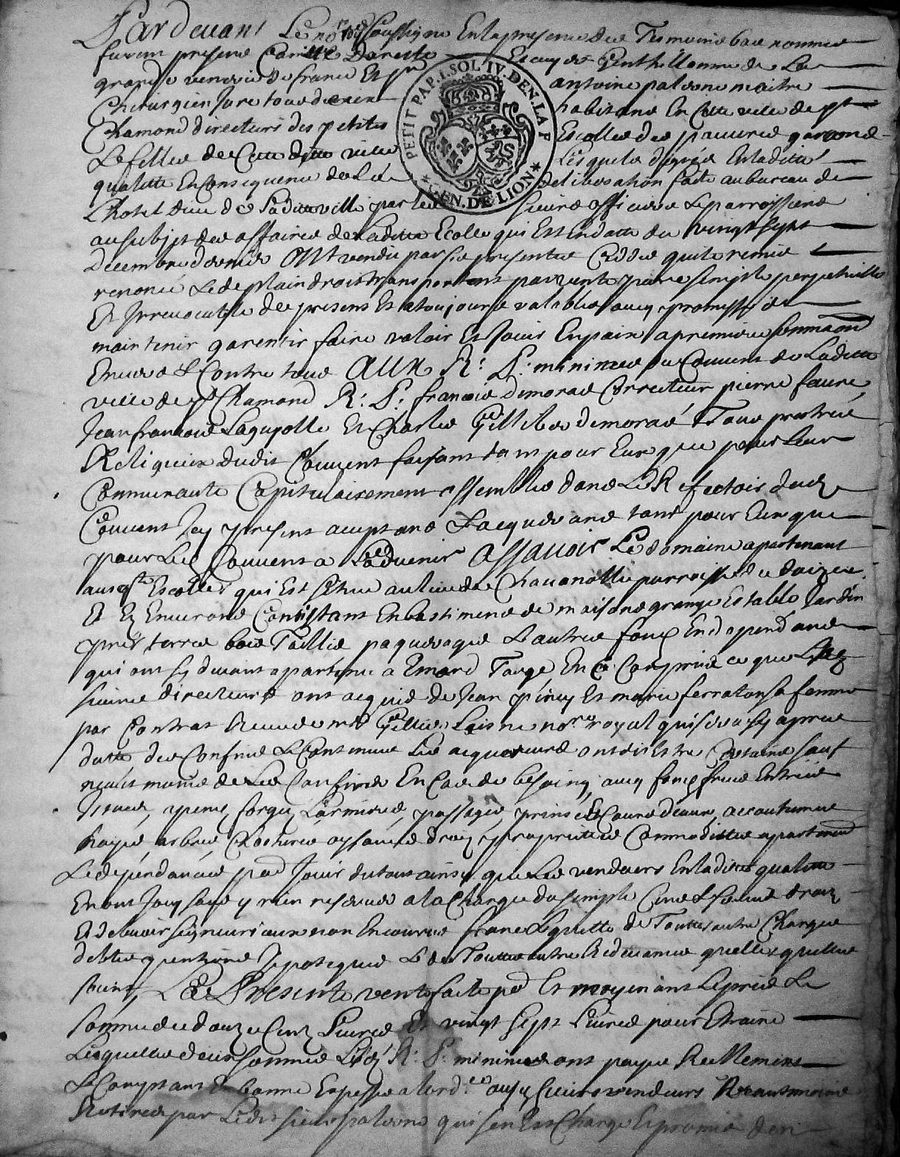 Pardevant Le no.re soussigné En la presence des Tesmoins bas nommes
furent presens Escuyer Gentilhomme de La
grande venerie de france Et sr antoine palerne maitre
Chirurgien Jure tous deux habitans En Cette ville de st
Chamond directeurs des petites Escolles des pauvres garcons
Le filles de Cette ditte ville Lesquels En laditte
qualitte En Consequence de La deliberation faite au bureau de
Lhotel dieu de Laditte ville par les sieurs officiers Le parroissiens
au subjet des affaires de Laditte Ecolle qui Est en datte du vingt sept
Decembre dernier ONT vendu par Ses presentes Cedde quitte remis
renoncé Le de plain droit transporté par vente pure simple perpetuelle
Et Irrevocable des presens Et a toujours valable avec promesse de
maintenir garentir faire valoir Et Jouir En paix a premiere sommaon
Envers Et Contre tous AUX R: P: minimes du Couvent de Laditte
ville de st Chamond R: P: françois dimorar Correcteur pierre faure
Jean francois Lagayolle Et Charles dimorar Tous prestres
Religieux dudit Couvent faisant tant pour Eux que pour Leur
Communauté Capitulairement assemblée dans Le Refectoir dud
Couvent Jcy present aceptans Stacquerans tant pour Eux que
pour Led Couvent a Ladvenir ASSAVOIR Le domaine apartenant
ausd Escolles qui Est scitué au lieu de Chavanolle parroisse de doizieu
Et Es Environs Consistant En bastimens de maisons grange Estable Jardin
prés terres bois Taillis paquerages Le autres fonds En dependans
qui ont cy devant apartenu a Emard Farge En Ce Compris ce que Lesd
sieurs directeurs ont acquis de Jean piney Et marie ferraton sa femme
par Contrat receu de me Gillier no.re royal qui sera cy apres
datté des Confins Le Contenance Les acquereurs ont dit Estre Certains sauf
neanmoins de Les Confiner En Cas de besoing, avec fonds fruits Entrées
Jssues, Largeurs passages prises Le Cours d'eaux accoutumés
arbres Clotures aysances droits proprietés Commodittés apartenances
Le dependances pour Jouir du tout ainsy que Les vendeurs En laditte qualitte
En ont Jouy sans y rien reserver a la Charge du simple Cens Et servis droits
Et debvoir seigneuriaux non Encourus franc Le quitte de Touttes autres Charges
debtes pentions hypoteques Le de Touttes autres Redevances quelles quelles
soient La Presente vente faite pour Et moyennant Le prix Le
somme de douze Cens Livres Et vingt sept Livres pour Etraine
Lesquelles deux sommes Lesd R: P: minimes ont payé Reellement
Le Comptant En bonne Especes a lord.ce ausd sieurs vendeurs Neantmoins
Retirées par Ledit sieur palerne qui sen Est Chargé Et promis den
PETIT PAP. 1. SOL IV. DEN. LA F.
GEN. DE LION